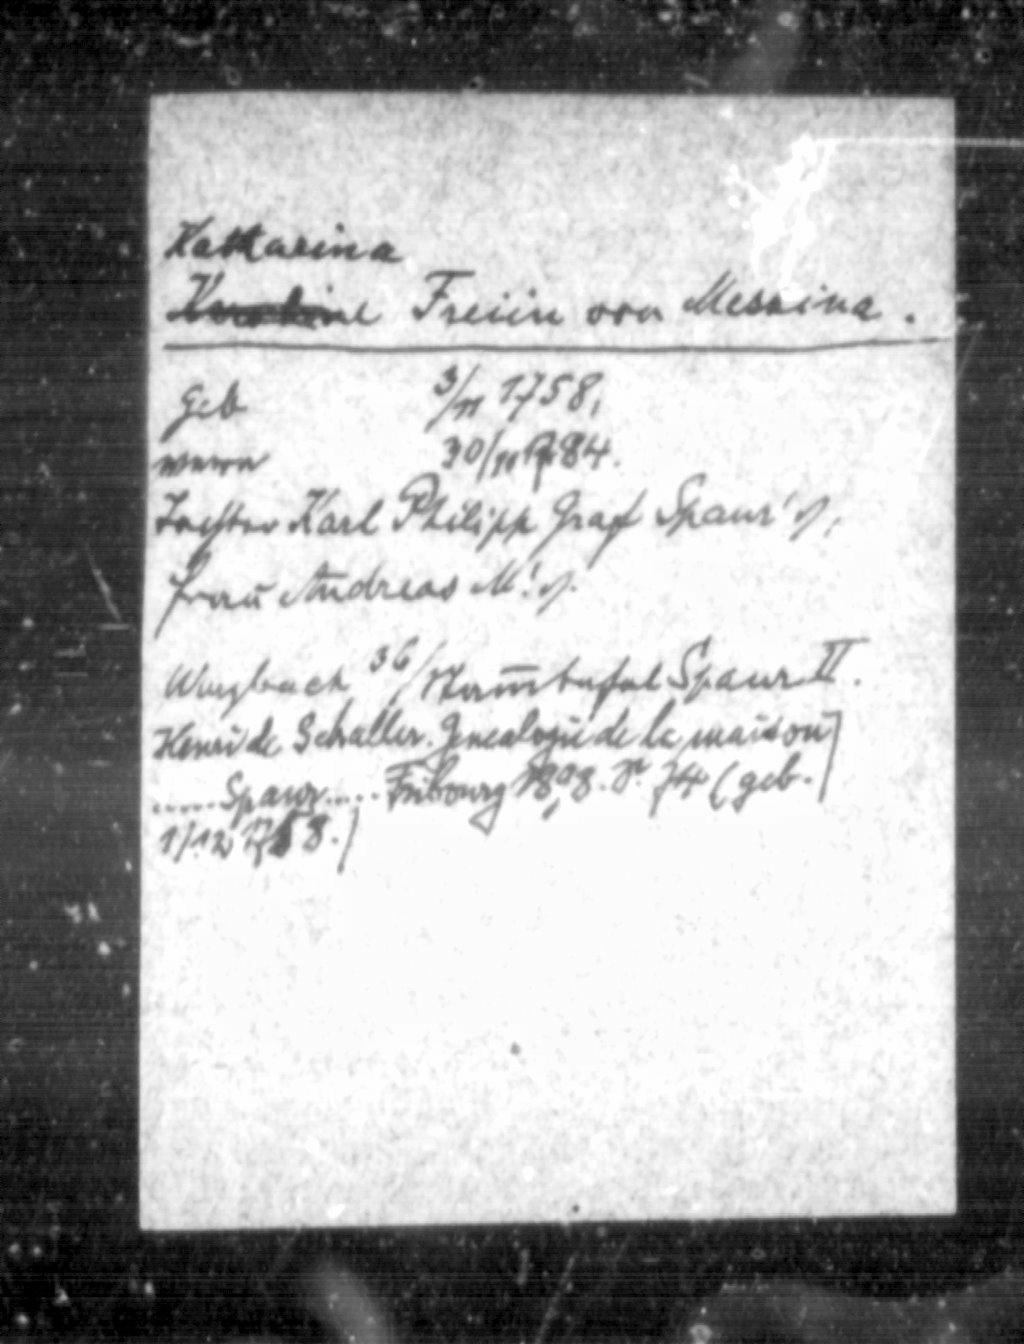 Katharina
Karoline Freiin von Messina.
geb 3/11 1758,
verm 30/11 1784.
Tochter Karl Philipp Graf Spaur's,
Frau Andreas M's.
Wurzbach 36/Stam̄tafel Spaur II.
Henri de Schaller. Genealogie de la maison
..... Spaur..... Fribourg 1898. S. 74 (geb.
1/12 1758.)